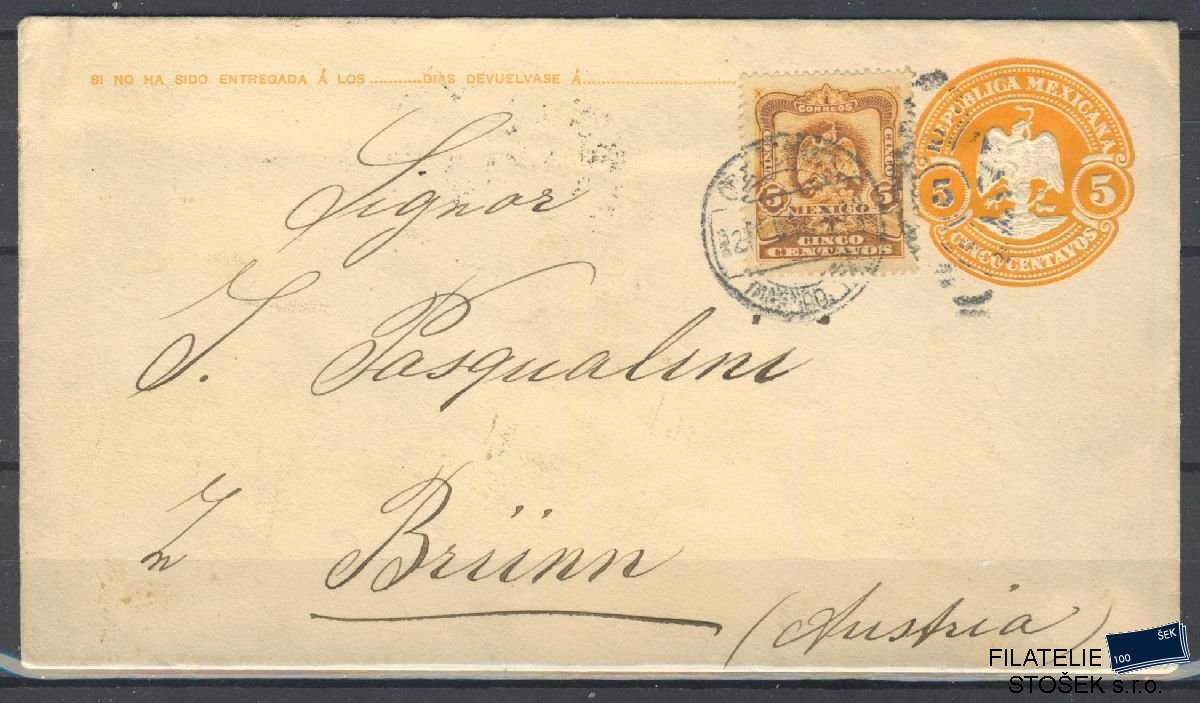 SI NO HA SIDO ENTREGADA Á LOS ........... DIAS DEVUELVASE Á ..............................
CORREOS
CINCO CINCO
5 5
MEXICO
CINCO
CENTAVOS
REPÚBLICA MEXICANA
5 5
CINCO CENTAVOS
Signor
J. Pasqualini
Brünn
(Austria)
FILATELIE
STOŠEK s.r.o.
100 ŠEK